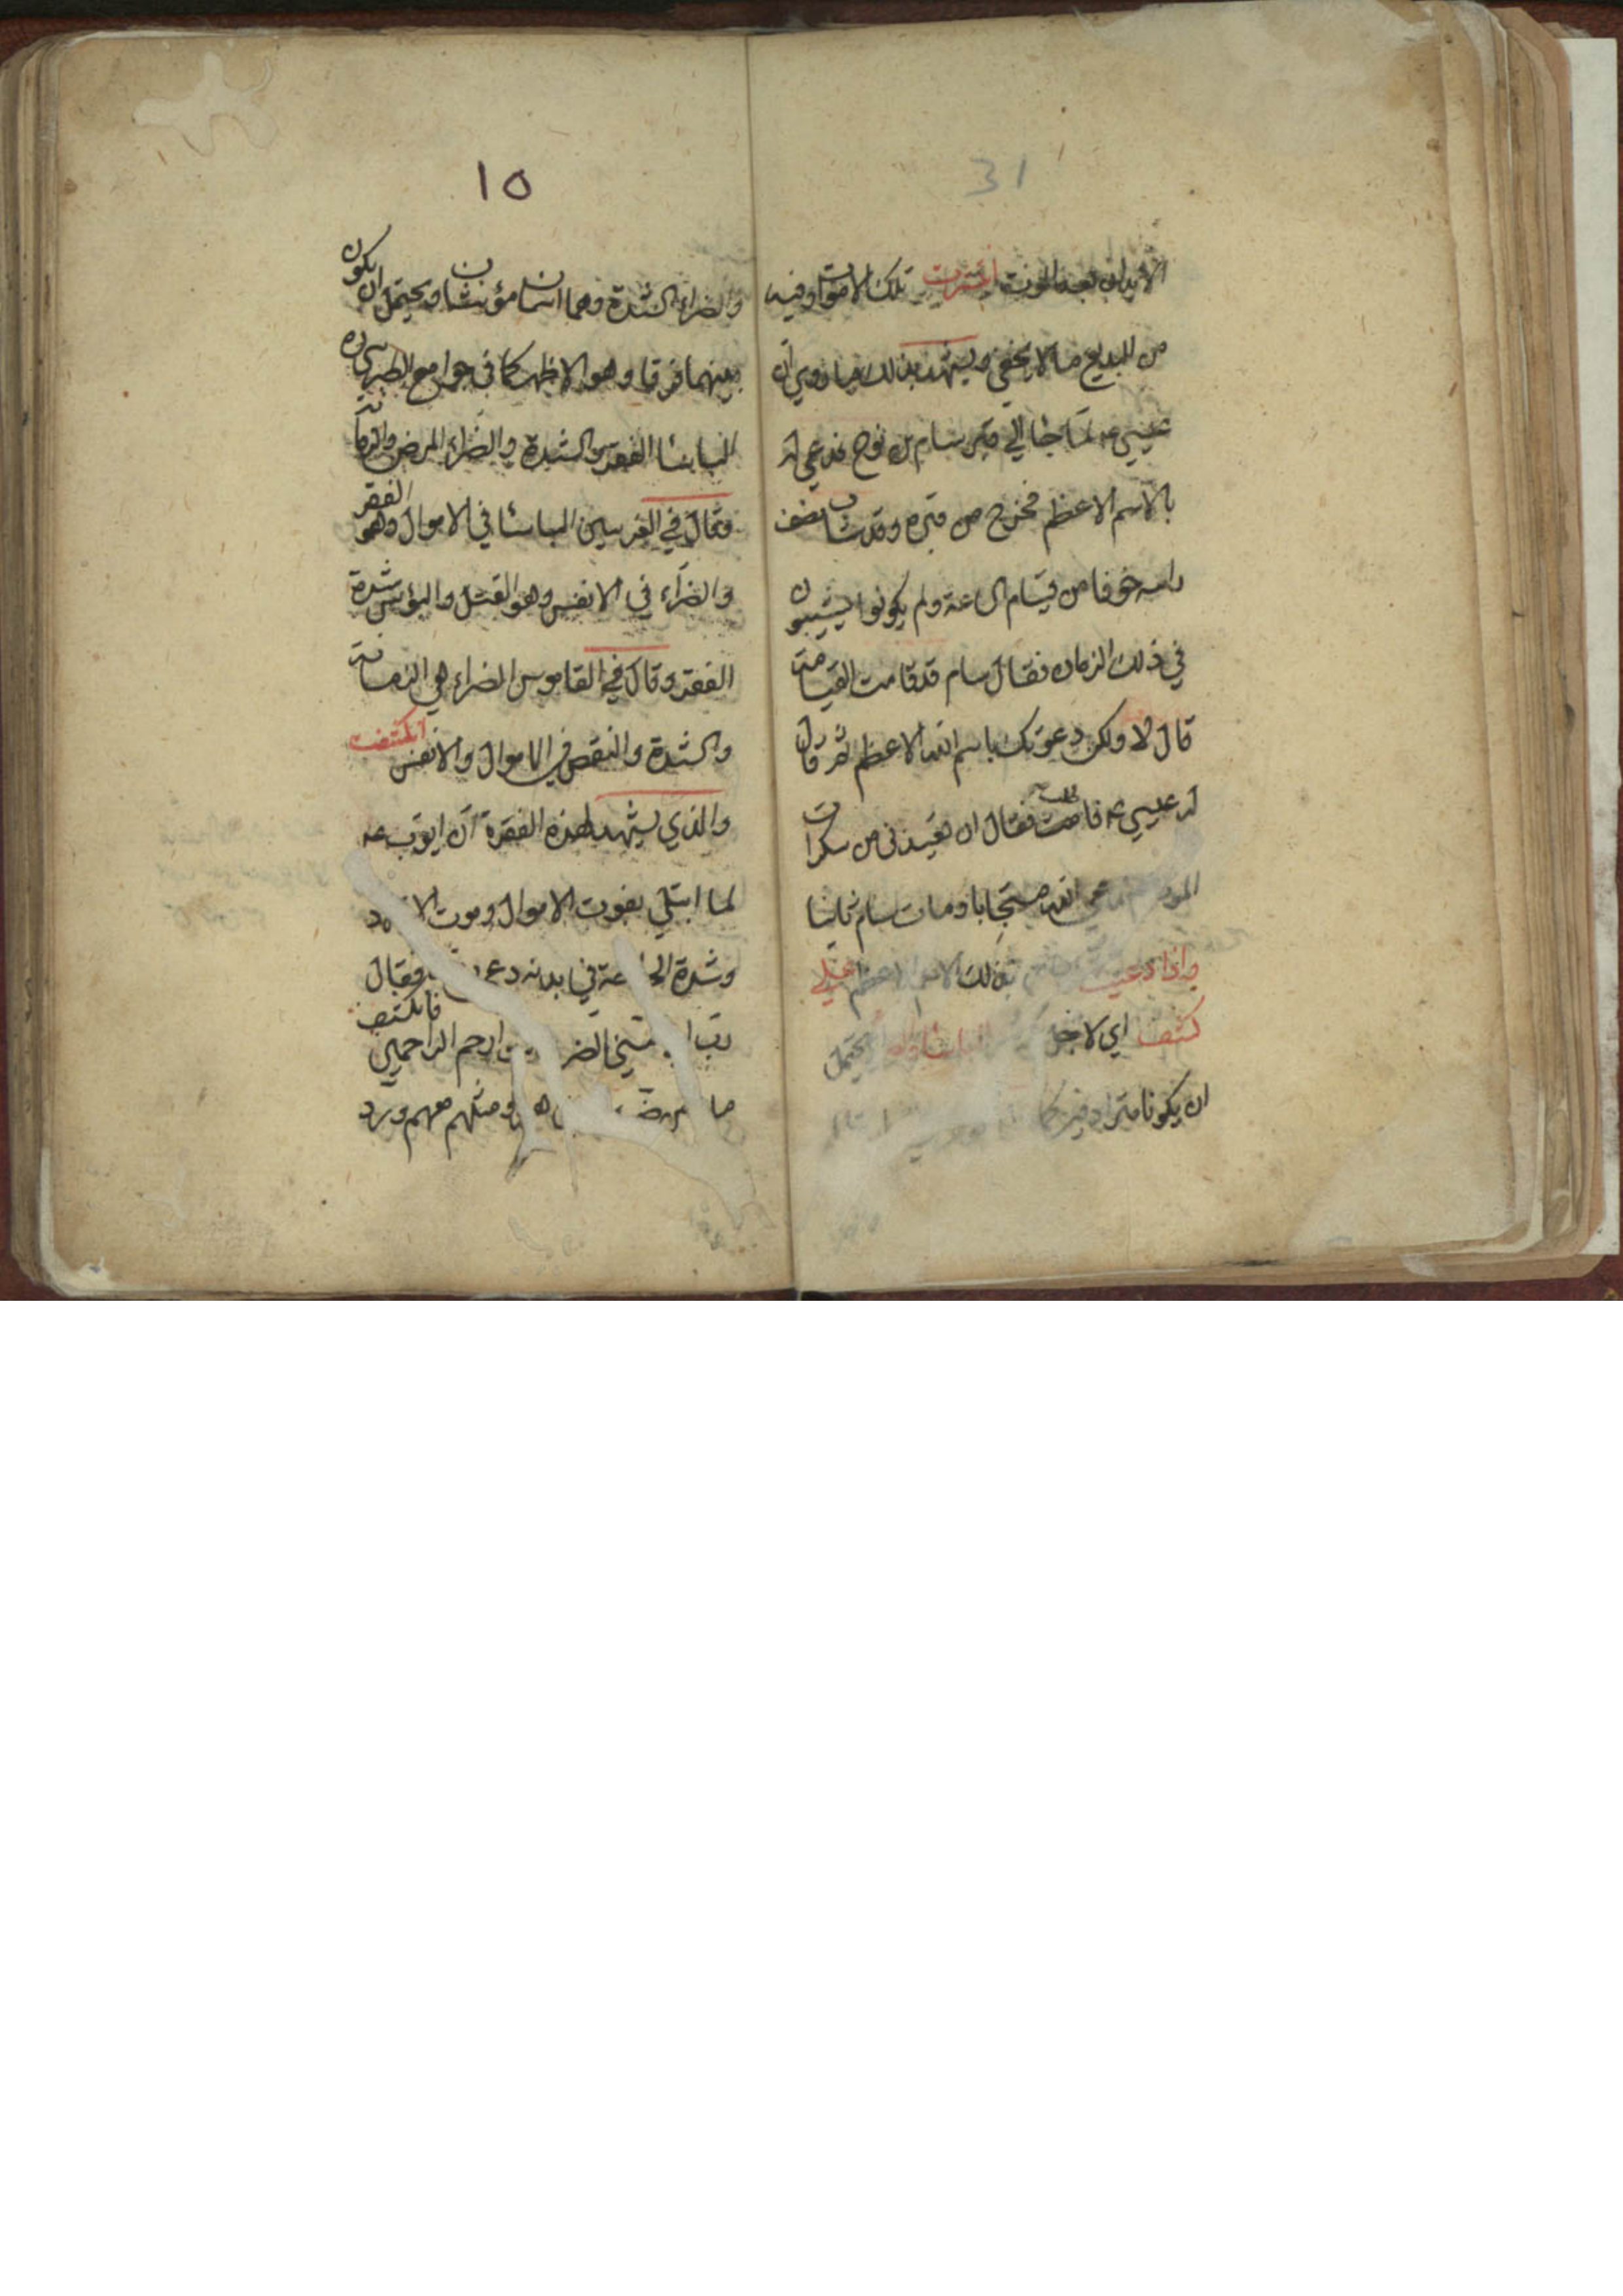 31
الابدان بعد الموت انتشرت تلك الاموات وفيه
من البديع ما لا يخفى ويشهد بذلك ما روي ان
عيسى ع لما جاء الي قبر سام بن نوح فدعي له
بالاسم الاعظم فخرج من قبره وقد شاب نصف
راسه خوفا من قيام الساعة ولم يكونوا يشيبون
في ذلك الزمان فقال سام قد قامت القيامة
قال لا ولكن دعوتك باسم الله الاعظم ثم قال
له عيسى ع فقال ان من سكرات
الله مستجابا ومات سام ثانيا
واذا دعيت بذلك الاسم الاعظم على
كشف اي لاجل الباسا يحتمل
ان يكونا مترادفين كما
10
والضراء الشدة وهما اسمان مؤنثان ويحتمل ان يكون
بينهما فرقا وهو الاظهر كما في جوامع الطبرسي ره
الباسا الفقر والشدة والضراء المرض والزمانة
وقال في الغريبين الباسا في الاموال وهو الفقر
والضراء في الانفس وهو القتل والبؤس شدة
الفقر وقال في القاموس الضراء هي الزمانة
والشدة والنقص في الاموال والانفس انكشفت
والذي يشهد لهذه الفقرة ان ايوب ع
لما ابتلي بفوت الاموال وموت
وشدة في بدنه دعي فقال
رب مسني الضر ارحم الراحمين فانكشف
ما ومثلهم معهم ورد